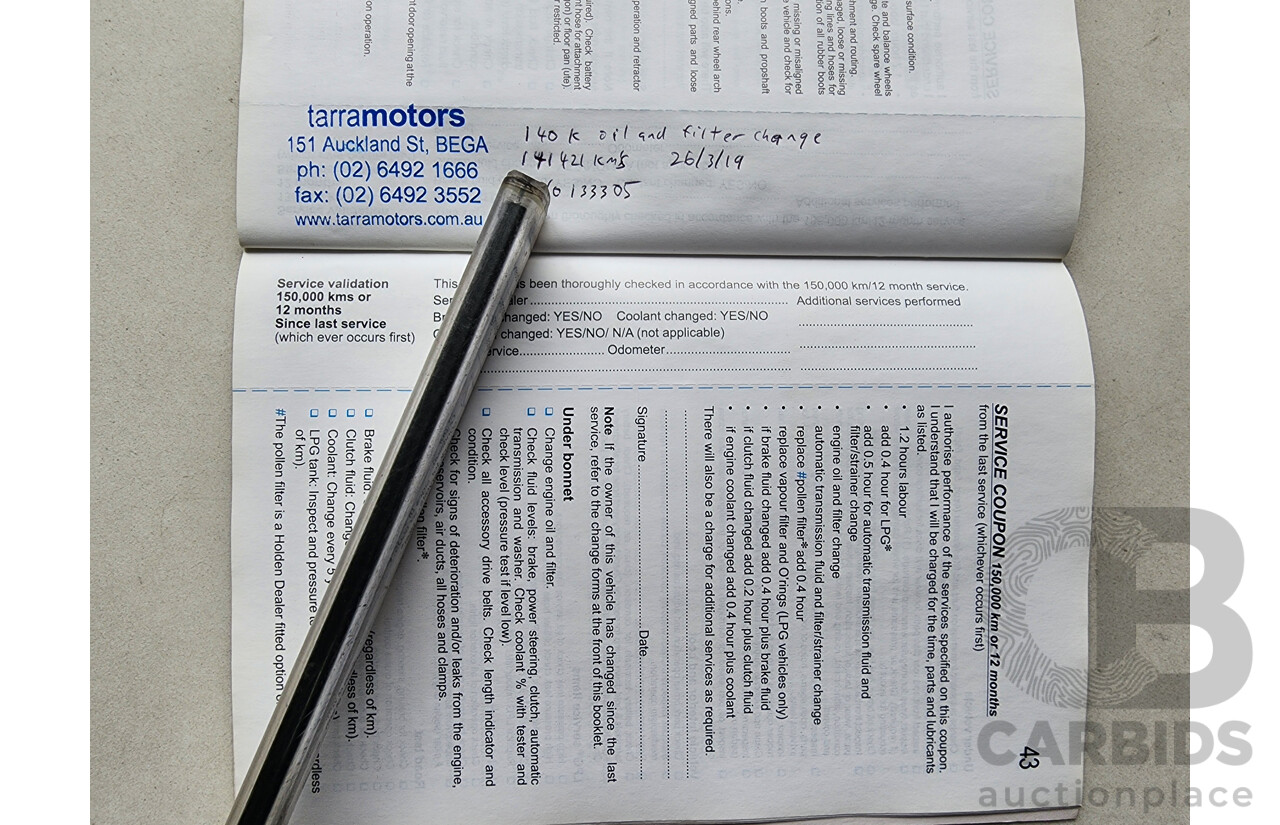 surface condition.
te and balance wheels
ge. Check spare wheel
hment and routing.
aged, loose or missing
ng lines and hoses for
tion of all rubber boots
missing or misaligned
e vehicle and check for
n boots and propshaft
ons.
behind rear wheel arch
gned parts and loose
peration and retractor
ired). Check battery
nt hose for attachment
gon) or floor pan (ute).
r restricted.
nt door opening at the
on operation.
tarramotors
151 Auckland St, BEGA
ph: (02) 6492 1666
fax: (02) 6492 3552
www.tarramotors.com.au
140 k oil and filter change
141421 kms 26/3/19
0133305
Service validation
150,000 kms or
12 months
Since last service
(which ever occurs first)
This s been thoroughly checked in accordance with the 150,000 km/12 month service.
Ser aler Additional services performed
changed: YES/NO Coolant changed: YES/NO
changed: YES/NO/ N/A (not applicable)
rvice Odometer
SERVICE COUPON 150,000 km or 12 months
from the last service (whichever occurs first)
43
I authorise performance of the services specified on this coupon.
I understand that I will be charged for the time, parts and lubricants
as listed.
• 1.2 hours labour
• add 0.4 hour for LPG*
• add 0.5 hour for automatic transmission fluid and
filter/strainer change
• engine oil and filter change
• automatic transmission fluid and filter/strainer change
• replace #pollen filter* add 0.4 hour
• replace vapour filter and O'rings (LPG vehicles only)
• if brake fluid changed add 0.4 hour plus brake fluid
• if clutch fluid changed add 0.2 hour plus clutch fluid
• if engine coolant changed add 0.4 hour plus coolant
There will also be a charge for additional services as required.
Signature Date
Note If the owner of this vehicle has changed since the last
service, refer to the change forms at the front of this booklet.
Under bonnet
Change engine oil and filter.
Check fluid levels: brake, power steering, clutch, automatic
transmission and washer. Check coolant % with tester and
check level (pressure test if level low).
Check all accessory drive belts. Check length indicator and
condition.
Check for signs of deterioration and/or leaks from the engine,
servoirs, air ducts, all hoses and clamps.
filter*.
Brake fluid: regardless of km).
Clutch fluid: Change dless of km).
Coolant: Change every 5 y
LPG tank: Inspect and pressure rdless
of km).
#The pollen filter is a Holden Dealer fitted option
CB
CARBIDS
auctionplace